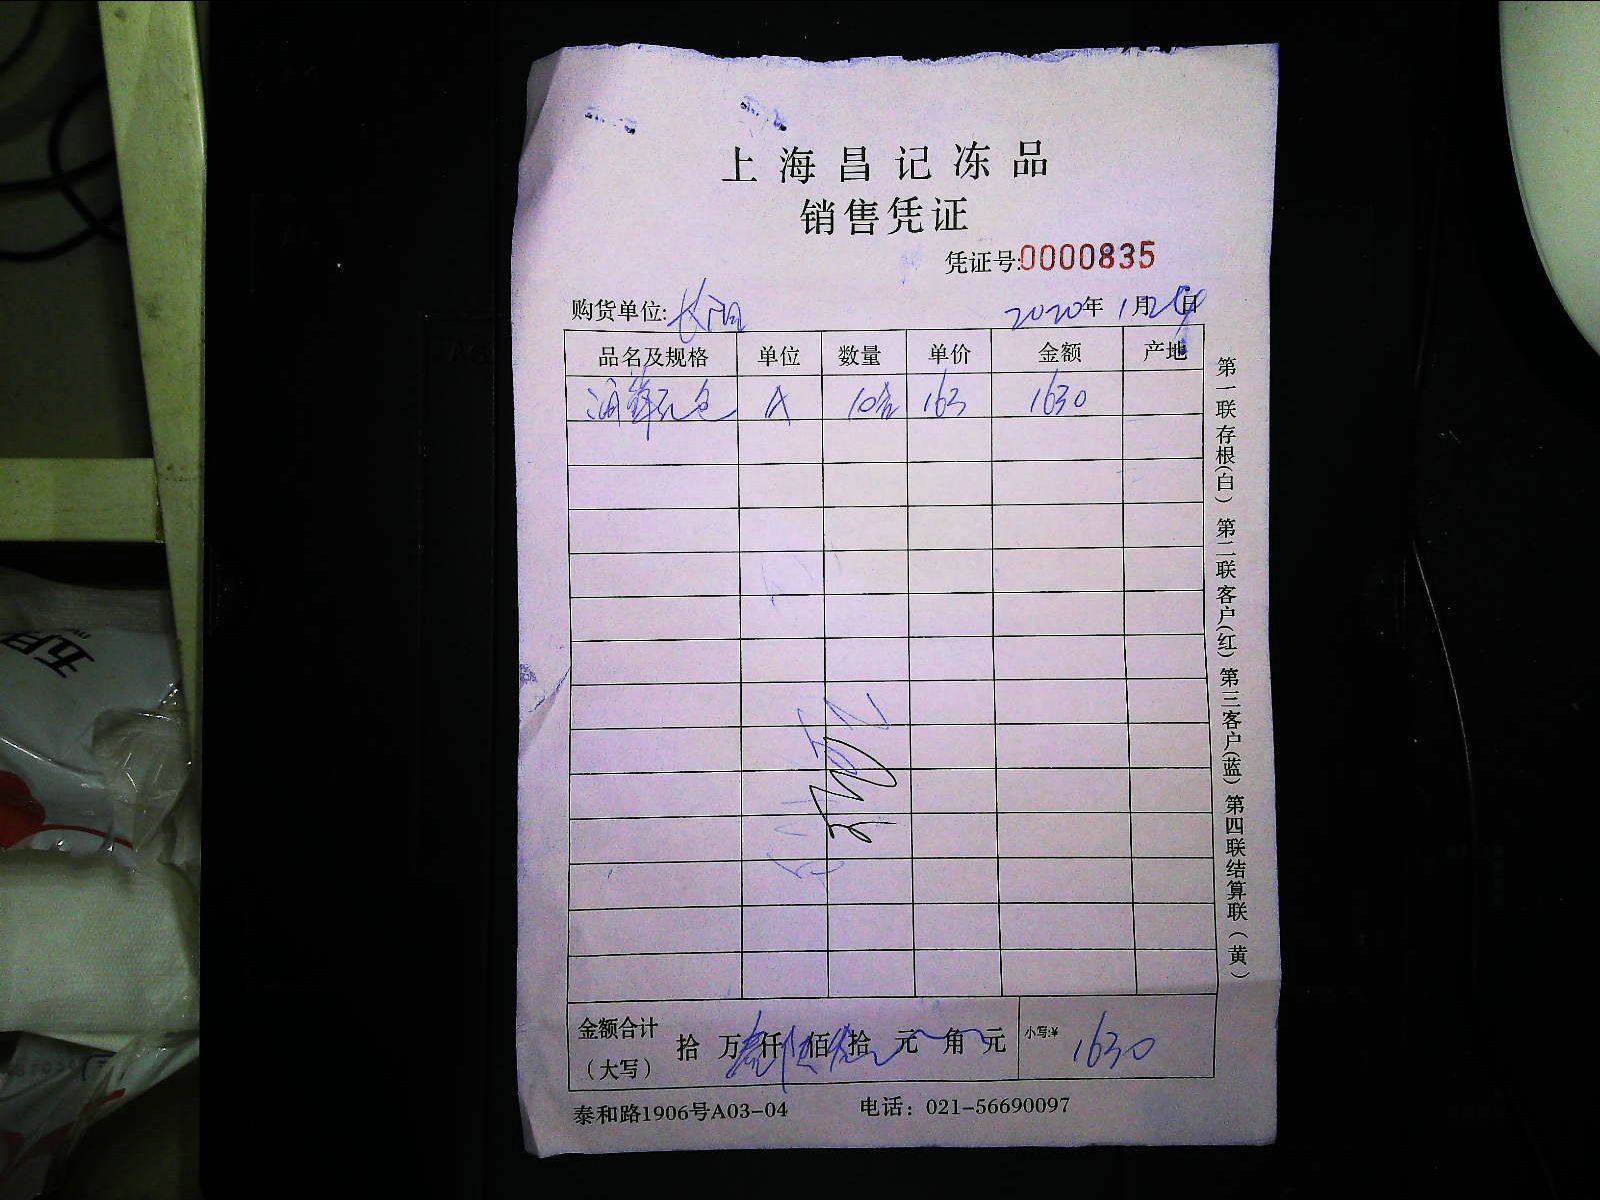 上海昌记冻品
销售凭证
凭证号:0000835
购货单位:长阳 2020年1月2日
品名及规格 单位 数量 单价 金额 产地
海鲜 A 10 163 1630
第一联存根(白) 第二联客户(红) 第三客户(蓝) 第四联结算联(黄)
金额合计 拾 万 仟 佰 拾 元 角 元 小写:¥ 1630
(大写)
泰和路1906号A03-04 电话：021-56690097
五月